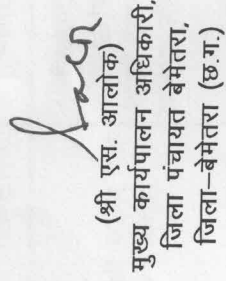 (श्री एस. आलोक)
मुख्य कार्यपालन अधिकारी,
जिला पंचायत बेमेतरा,
जिला–बेमेतरा (छ.ग.)